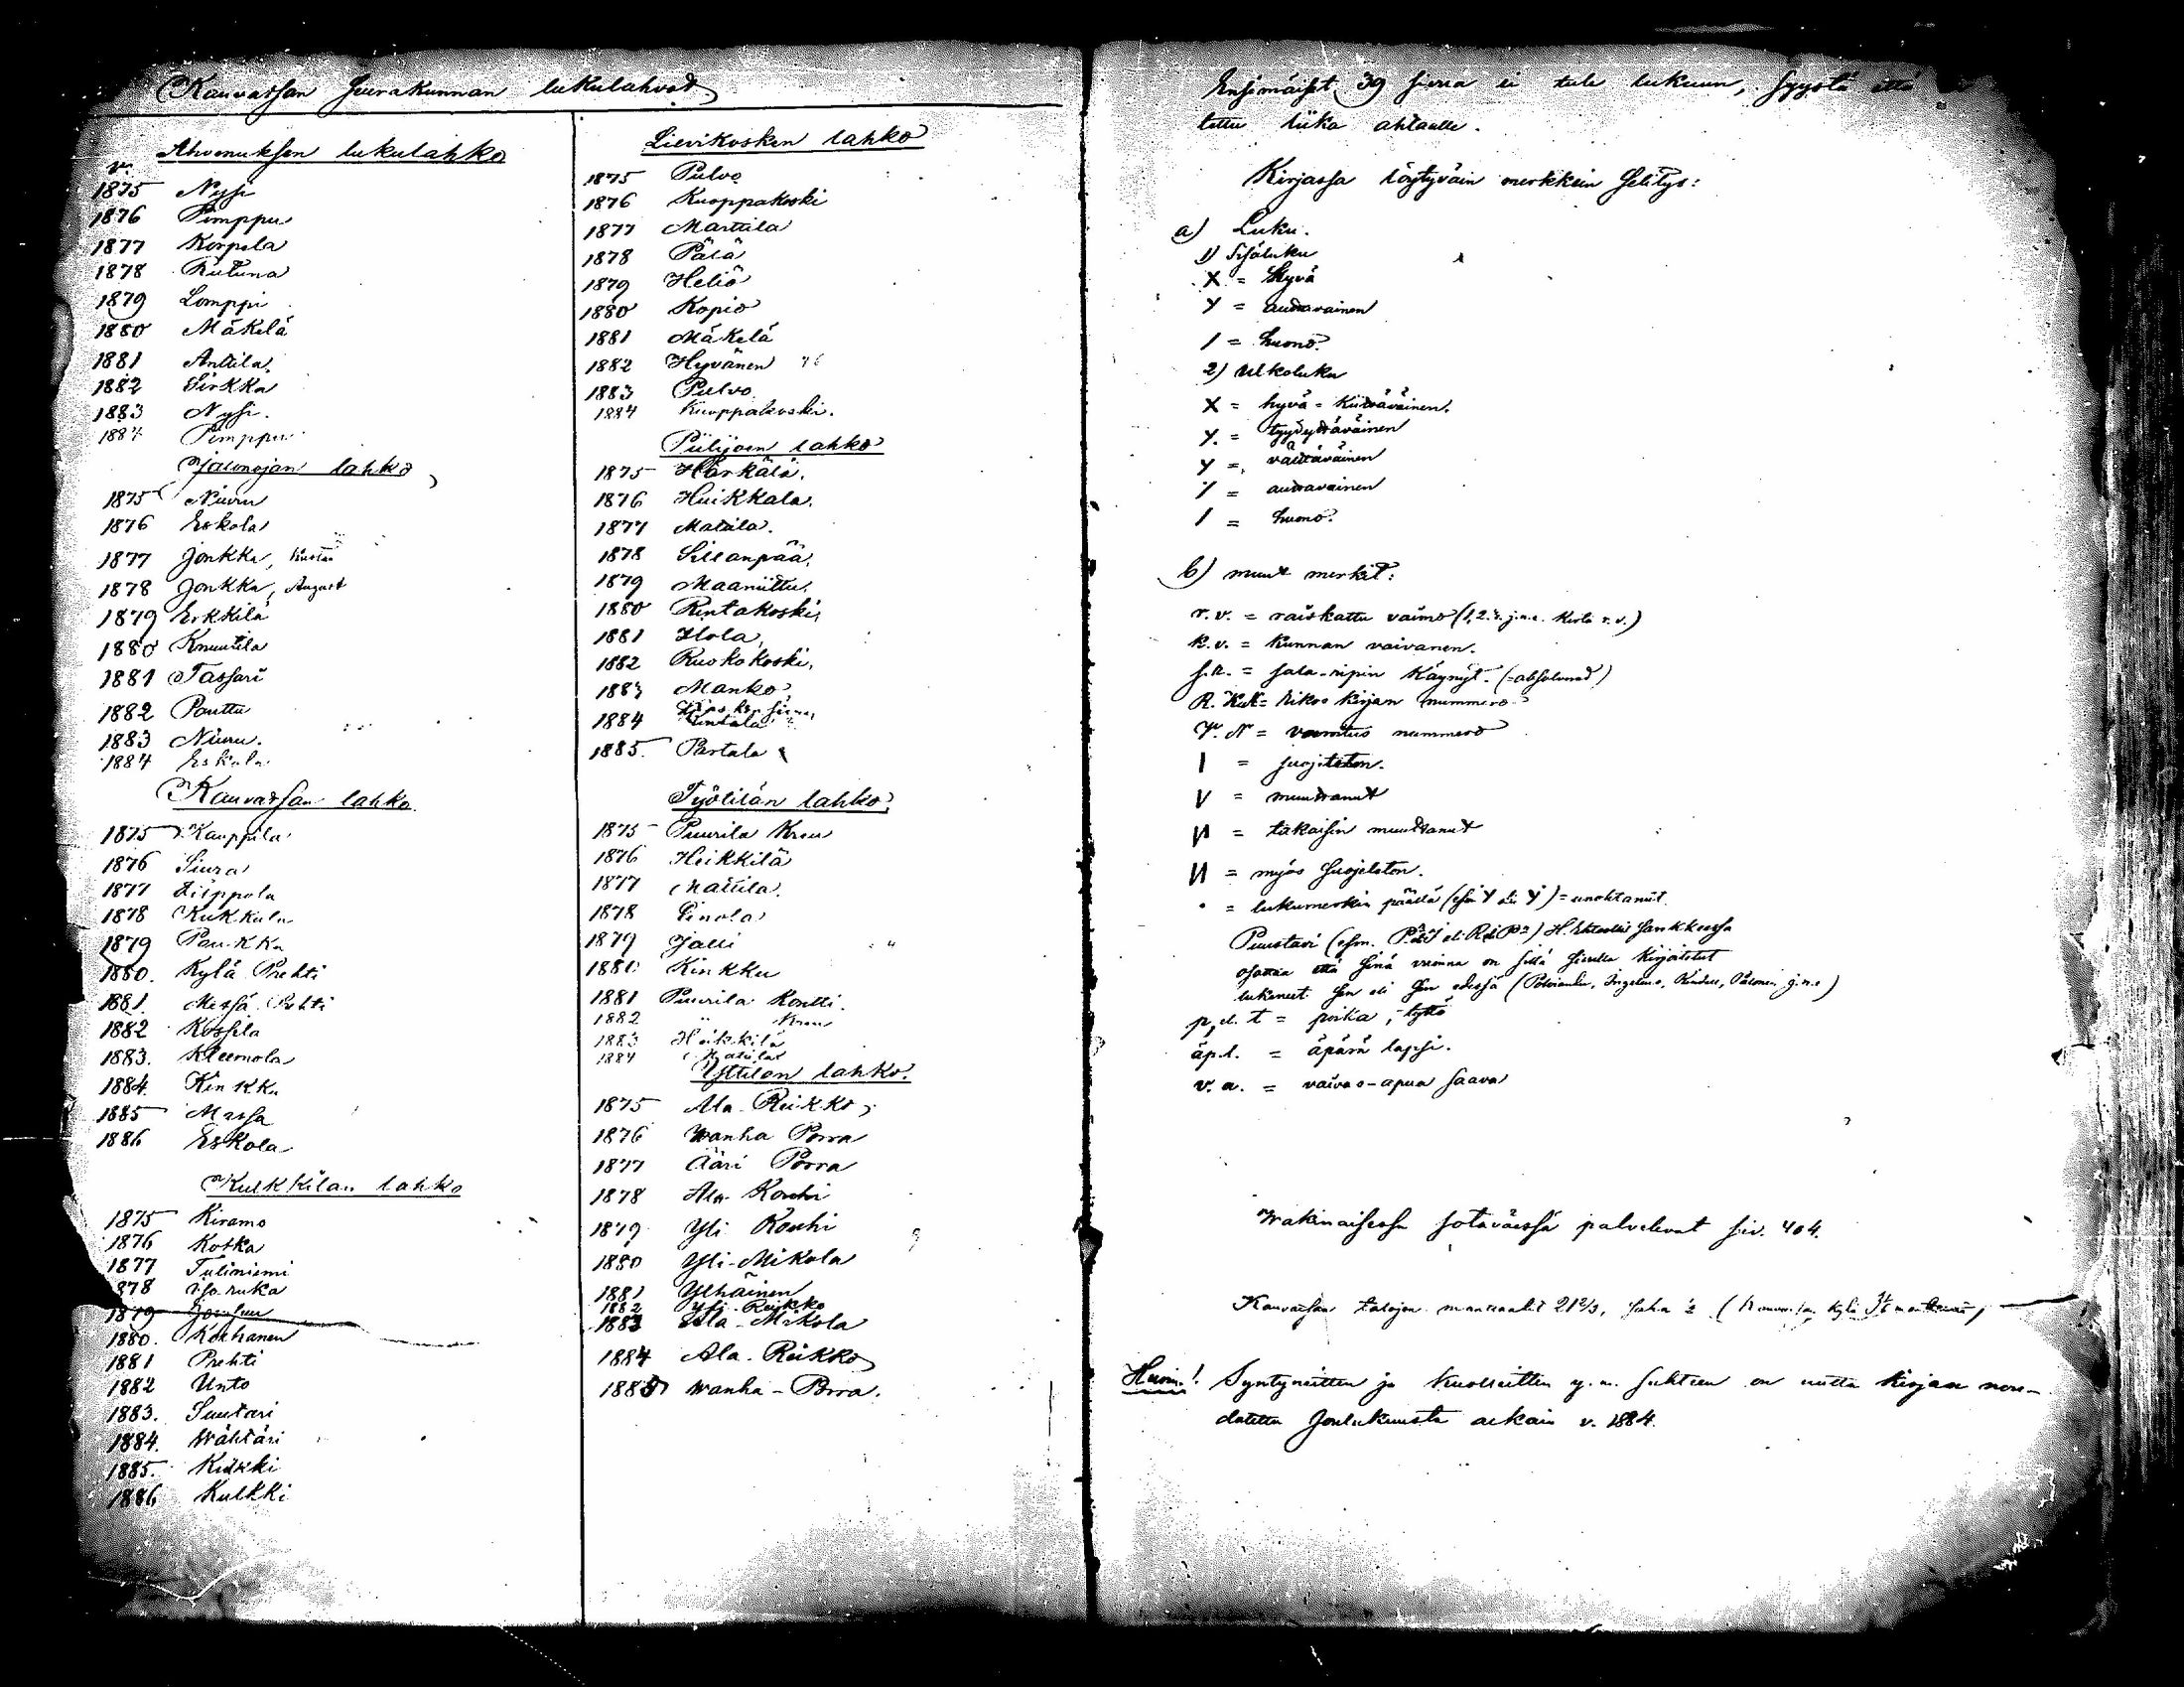 Kauvatsan Seurakunnan lukulahvot
Ahvenuksen lukulahko
v.
1875 Nysi
1876 Pimppu
1877 Korpela
1878 Rutuna
1879 Lomppi
1880 Mäkelä
1881 Anttila
1882 Sirkka
1883 Nysi.
1884 Pimppu
Jalonojan lahko
1875 Niuru
1876 Eskola
1877 Jonkka, Kustaa
1878 Jonkka, August
1879 Erkkilä
1880 Knuutila
1881 Tassari
1882 Pouttu
1883 Niuru.
1884 Eskola
Kauvatsan lahko
1875 Kauppila
1876 Siura
1877 Piippola
1878 Kukkula
1879 Paukka
1880. Kylä Prehti
1881. Metsä Prehti
1882 Kossila
1883. Kleemola
1884. Kinkku
1885 Massa
1886 Eskola
Kulkkilan lahko
1875 Kiramo
1876 Kotka
1877 Tuliniemi
878
1879
1880. Korhanen
1881 Prehti
1882 Unto
1883. Suutari
1884. Wähtäri
1885. Kiukki
1886 Kulkki
Lievikosken lahko
1875 Pulvo
1876 Kuoppakoski
1877 Marttila
1878 Pälä
1879 Heliö
1880 Kopio
1881 Mäkelä
1882 Hyvänen
1883 Pulvo
1884 Kuoppakoski.
Piilijoen lahko
1875 Härkälä.
1876 Huikkala.
1877 Mattila.
1878 Sillanpää.
1879 Maaniittu.
1880 Rintakoski,
1881 Hola,
1882 Ruokokoski,
1883 Manko,
1884 Rintala
1885. Partala
Työtilän lahko
1875 Puurila Kreu
1876 Heikkilä
1877 Mattila.
1878 Pinola
1879 Jalli
1880 Kinkku
1881 Puurila Kontti.
1882 " Kreu
1883 Heikkilä
1884 Mattila
Yttilän lahko.
1875 Ala-Reikko,
1876 Wanha Porra
1877 Ääri Porra
1878 Ala Kouhi
1879 Yli Kouhi
1880 Yli-Mikola
1881 Ylhäinen
1882 Yli-Reikko
1883 Ala-Mikola
1884 Ala-Reikko
1885 Wanha-Porra.
Ensimäiset 39 sivua ei tule lukuun, syystä että
tettu liika ahtaalle.
Kirjassa löytyväin merkkein selitys:
a) Luku.
1) Sisäluku
X = Hyvä
Y = auttavainen
/ = huono.
2) Ulkoluku
X = hyvä = kiitettäväinen.
Y. = tyydyttäväinen
Y = välttäväinen
Y = auttavainen
/ = huono.
b) muut merkit:
r.v. = raiskattu vaimo (1, 2. k. j.n.e. kerta r.v.)
k.v. = kunnan vaivanen.
s.r. = sala-ripin käynyt. (= absolverad)
R. K. N = Rikos kirjan nummero
V. N = varoitus nummero
I = suojeleton.
V = muuttanut
И = takaisin muuttanut
И = myös suojeleton.
• = lukumerkin päällä (esim Y eli Y) = unohtanut.
Puustavi (esm. ) H. Ehtoollis sarekkeessa
osottaa että sinä vuonna on sillä sivulla kirjoitetut
lukeneet sen eli sen edessä j.n.e)
p, el. t = poika, -tyttö
äp.l. = äpärä lapsi.
v.a. = vaivas-apua saava
Wakinaisessa sotaväessä palvelevat siv. 404.
Kauvatsan talojen manttaalit 21 2/3,
Huom.! Syntyneitten ja Kuolleitten y.m. suhteen on uutta kirjaa nou-
datettu Joulukuusta aikain v. 1884.